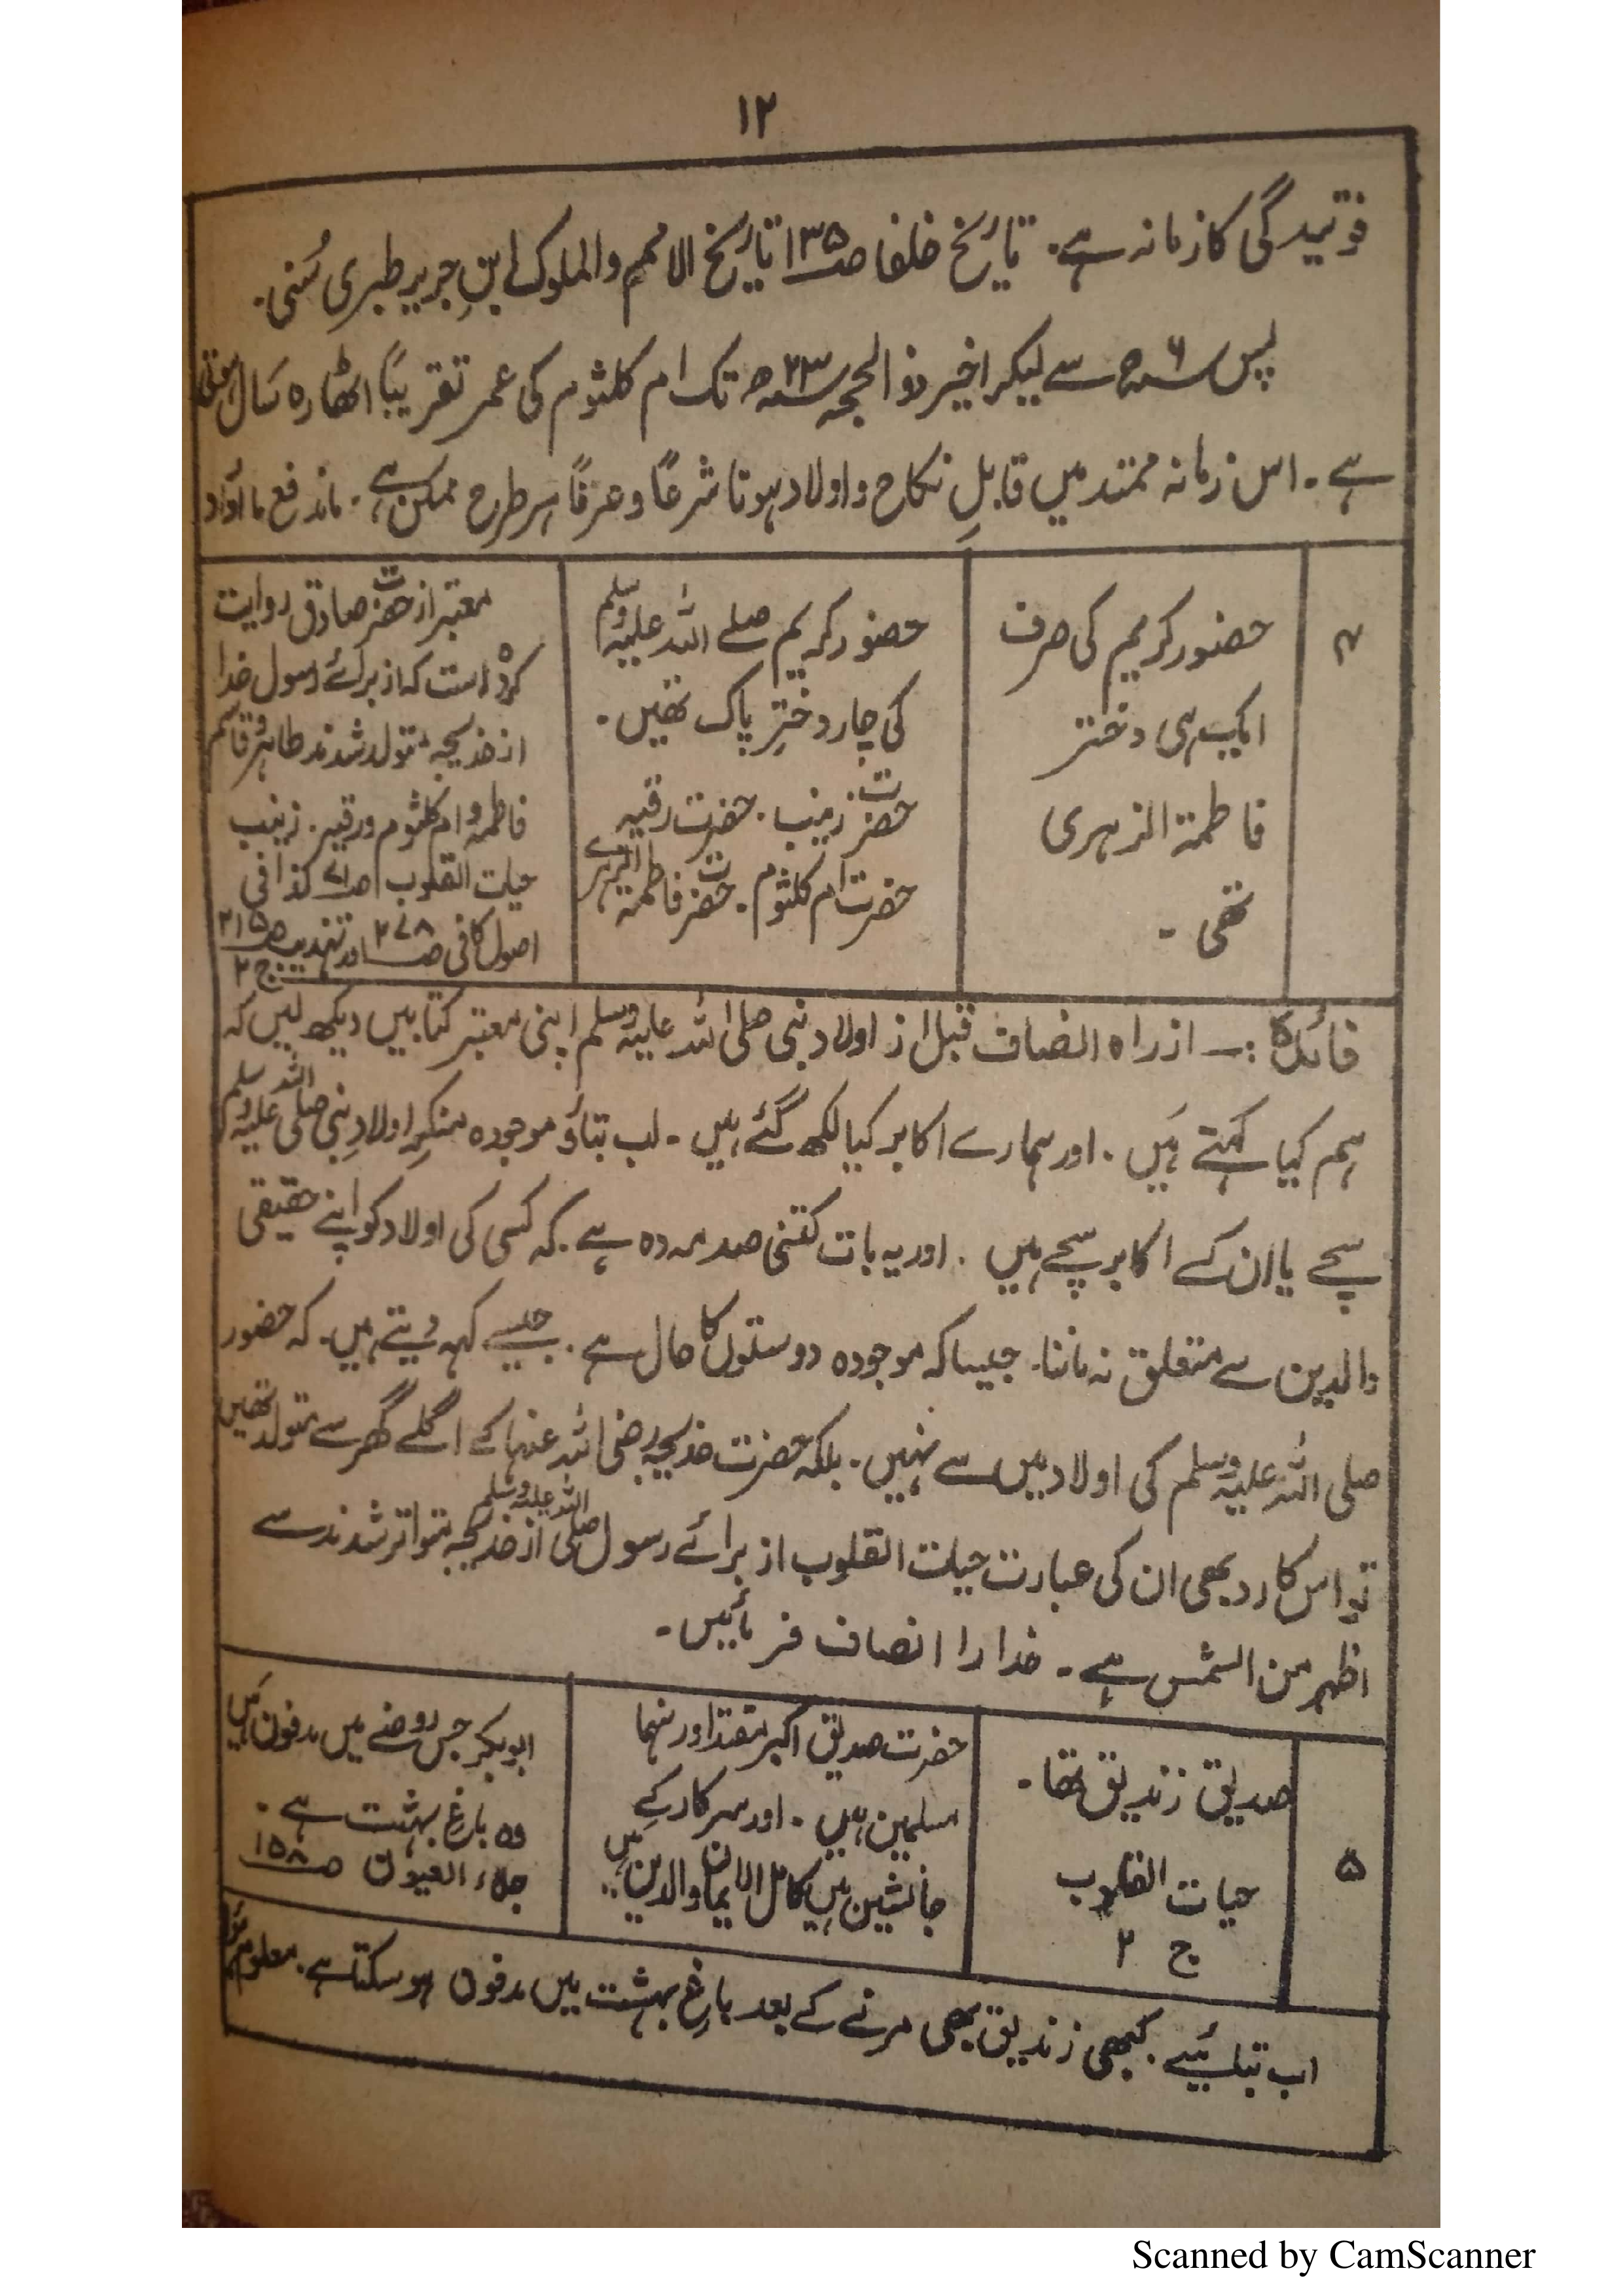 ۱۲
فوتیدگی کا زمانہ ہے۔ تاریخ خلفا ص۱۳۵ تاریخ الامم والملوک ابنِ جریر طبری سُنی۔
پس ۶ھ سے لیکر اخیر ذوالحجہ ۲۳ھ تک ام کلثوم کی عمر تقریباً اٹھارہ سال ہوتی
ہے۔ اس زمانہ ممتد میں قابلِ نکاح و اولاد ہونا شرعاً و عرفاً ہر طرح ممکن ہے۔ ماندفع ما اُورد
۴
حضور کریم کی صرف
ایک ہی دختر
فاطمۃ الزہری
تھی۔
حضور کریم صلے اللہ علیہ وسلم
کی چار دخترِ پاک تھیں۔
حضرت زینب۔ حضرت رقیہ
حضرت ام کلثوم۔ حضرت فاطمۃ الزہرے
معتبر از حضرت صادق روایت
کردہ است کہ از برائے رسول خدا
از خدیجہ متولد شدند طاہر و قاسم
فاطمہ و ام کلثوم و رقیہ۔ زینب
حیات القلوب ص۷۱ کذا فی
اصول کافی ص۲۷۸ اور تہذیب ص۲۱۵ ج ۲
فائدہ :۔ از راہ انصاف قبل از اولاد نبی صلی اللہ علیہ وسلم اپنی معتبر کتابیں دیکھ لیں کہ
ہم کیا کہتے ہیں۔ اور ہمارے اکابر کیا لکھ گئے ہیں۔ اب بتاؤ موجودہ منکرِ اولادِ نبی صلی اللہ علیہ وسلم
سچے یا ان کے اکابر سچے ہیں۔ اور یہ بات کتنی صدمہ دہ ہے۔ کہ کسی کی اولاد کو اپنے حقیقی
والدین سے متعلق نہ ماننا۔ جیسا کہ موجودہ دوستوں کا حال ہے۔ جیسے کہہ دیتے ہیں۔ کہ حضور
صلی اللہ علیہ وسلم کی اولاد میں سے نہیں۔ بلکہ حضرت خدیجہ رضی اللہ عنہا کے اگلے گھر سے متولد تھیں
تو اس کا رد بھی ان کی عبارت حیات القلوب از برائے رسول صلی اللہ علیہ وسلم از خدیجہ متواتر شدند سے
اظہر من الشمس ہے۔ خدارا انصاف فرمائیں۔
۵
صدیق زندیق تھا۔
حیات القلوب
ج ۲
حضرت صدیق اکبر مقتدا ور ہنما
مسلمین ہیں۔ اور سرکار کے
جانشین ہیں کامل الایمان والدین ہیں
ابوبکر جس روضے میں مدفون ہیں
وہ باغِ بہشت ہے۔
جلاء العیون ص۱۵۸
اب بتلائیے۔ کبھی زندیق بھی مرنے کے بعد باغِ بہشت میں مدفون ہو سکتا ہے۔ معلوم ہوا
Scanned by CamScanner